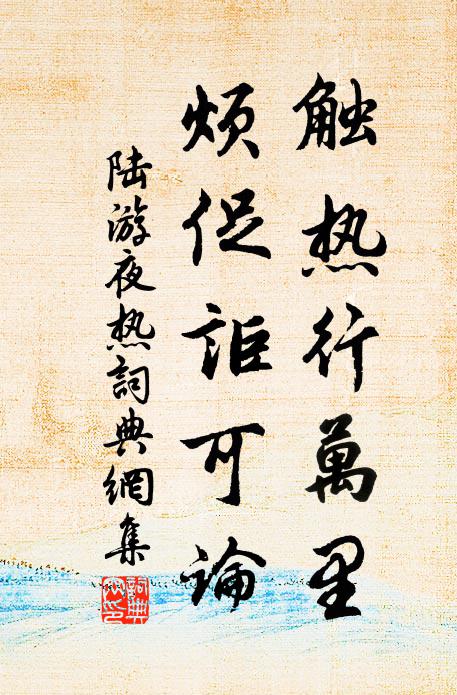 触热行萬里
烦促詎可論
陆游夜热詞典網集